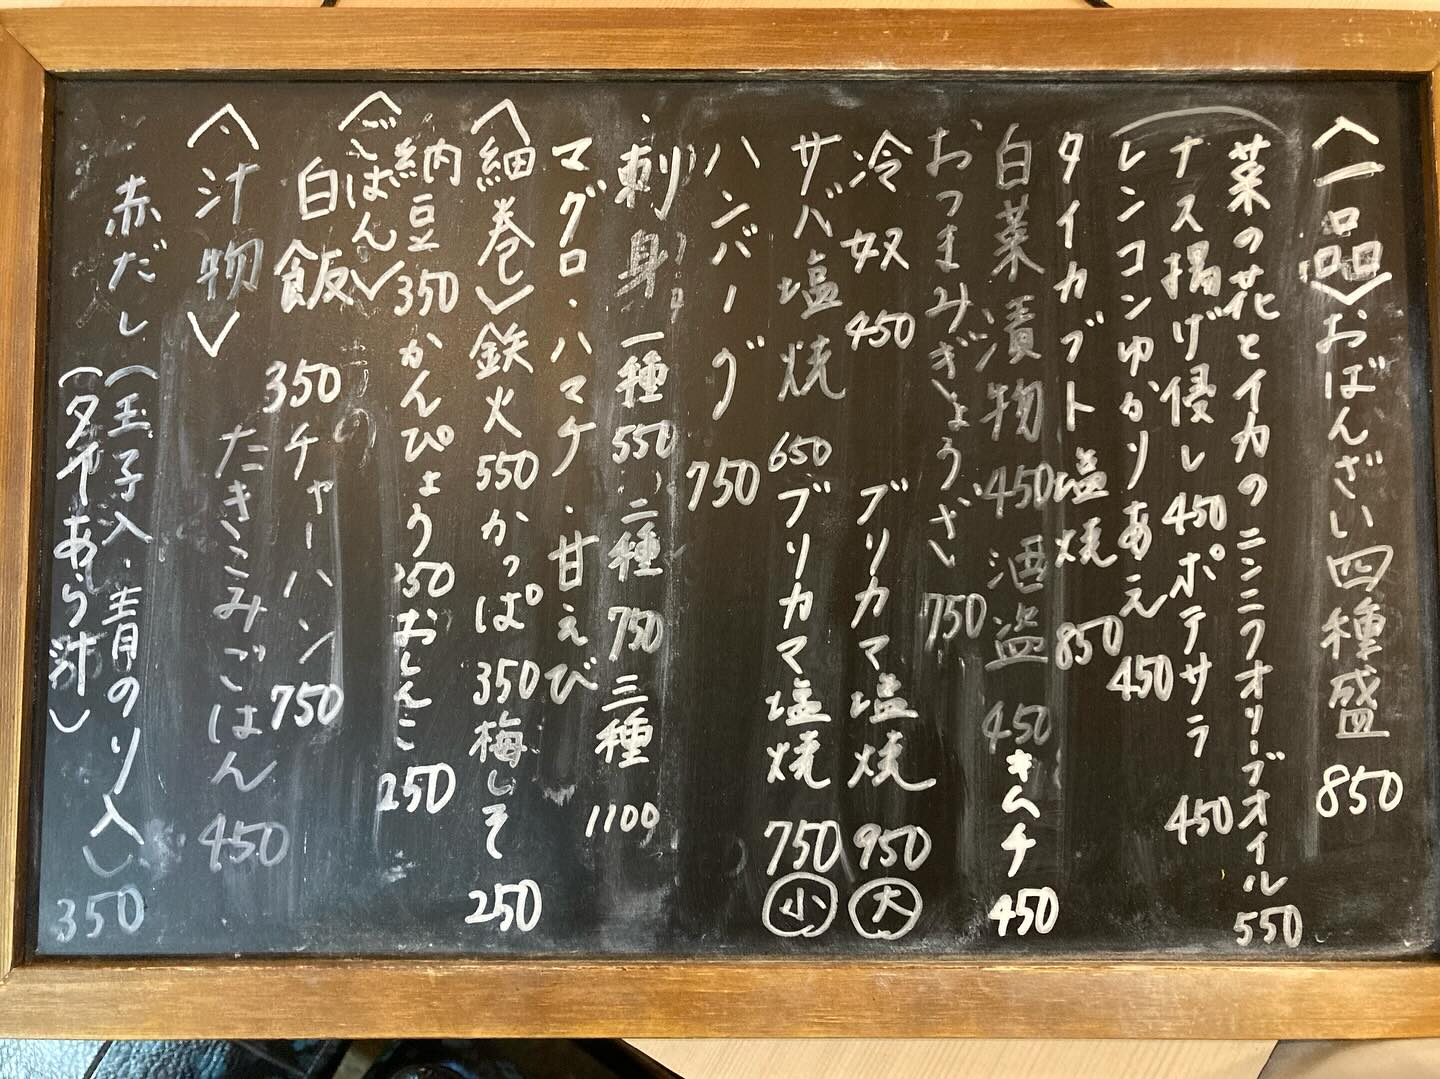 〈一品〉おばんざい四種盛 850
菜の花とイカのニンニクオリーブオイル 550
ナス揚げ侵し 450 ポテサラ 450
レンコンゆかりあえ 450
タイカブト塩焼 850
白菜漬物 450 酒盗 450 キムチ 450
おつまみぎょうざ 750
冷奴 450 ブリカマ塩焼 950 大
サバ塩焼 650 ブリカマ塩焼 750 小
ハンバーグ 750
刺身 一種 550 二種 750 三種 1100
マグロ・ハマチ・甘えび
〈細巻〉鉄火 550 かっぱ 350 梅しそ 250
納豆 350 かんぴょう 350 おしんこ 250
〈ごはん〉
白飯 350 チャーハン 750
たきこみごはん 450
〈汁物〉
赤だし (玉子入・青のり入) 350
(タイあら汁)